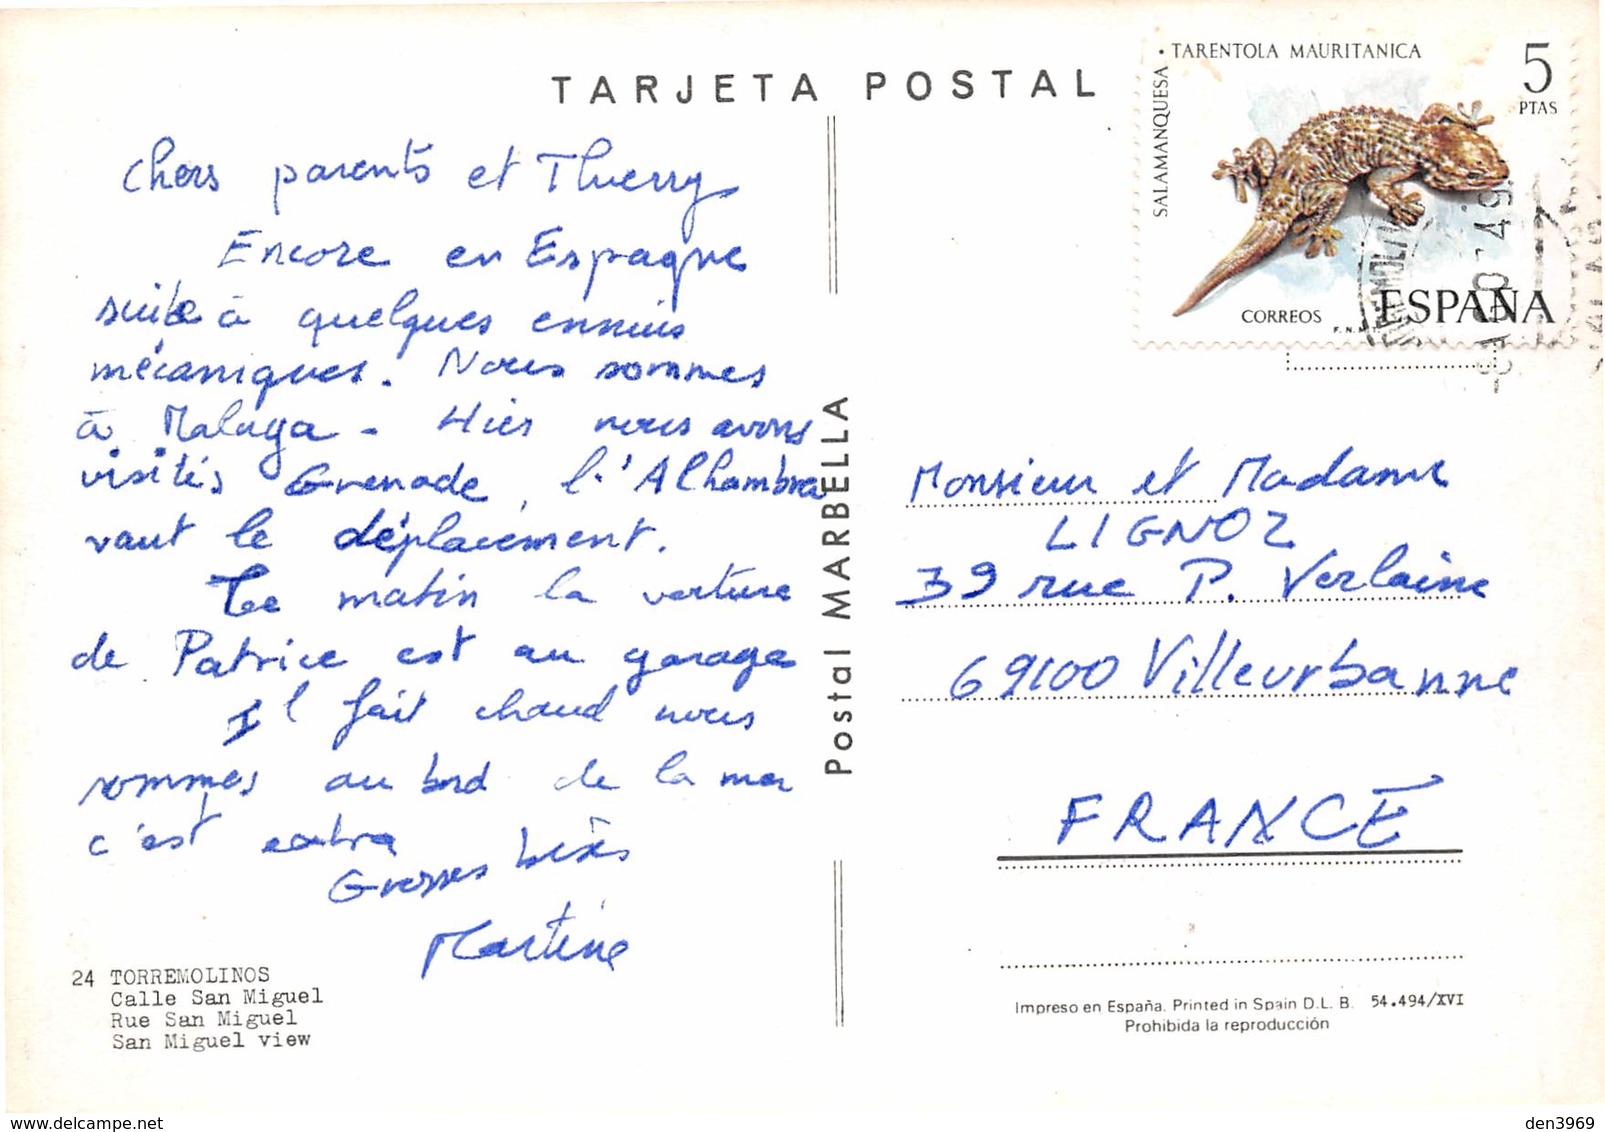 TARJETA POSTAL
Chers parents et Thierry
Encore en Espagne
suite à quelques ennuis
mécaniques. Nous sommes
à Malaga - Hier nous avons
visités Grenade, l'Alhambra
vaut le déplacement.
Ce matin la voiture
de Patrice est au garage
Il fait chaud nous
sommes au bord de la mer
c'est extra
Grosses bises
Martine
24 TORREMOLINOS
Calle San Miguel
Rue San Miguel
San Miguel view
Postal MARBELLA
SALAMANQUESA • TARENTOLA MAURITANICA
5
PTAS
CORREOS
F.N.M.T.
ESPAÑA
Monsieur et Madame
LIGNOZ
39 rue P. Verlaine
69100 Villeurbanne
FRANCE
Impreso en España. Printed in Spain D.L. B. 54.494/XVI
Prohibida la reproducción
den3969